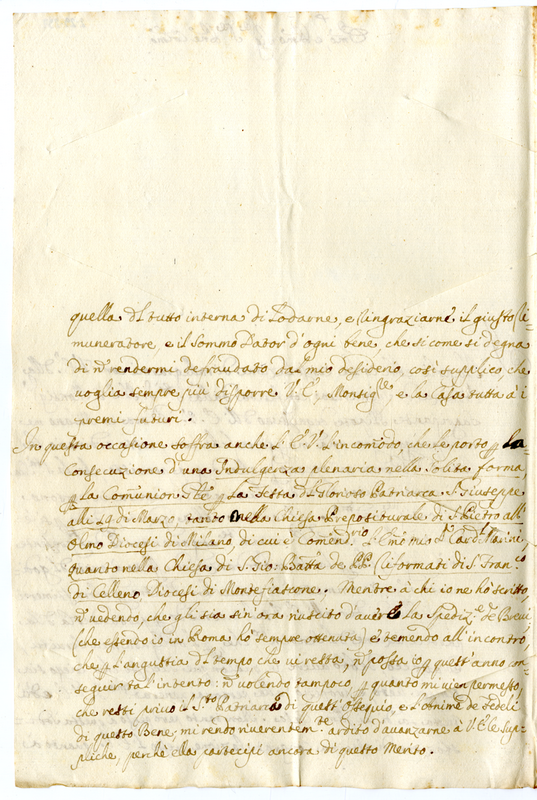 quella dl tutto interna di Lodarne, e Ringraziarne il giusto Ri-
muneratore, e il Sommo Dator d'ogni bene, che si come si degna
di ñ rendermi defraudato dal mio desiderio, così supplico che
voglia sempre più disporre V.E. Monsig.re e la Casa tutta à i
premj futuri.
In questa occasione soffra anche l'E.V. l'incomodo, che le porto p la
Consecuzione d'una Indulgenza plenaria nella solita forma,
p la Comũnion Gñle p la Festa dl Glorioso Patriarca S. Giuseppe
alli 19 di Marzo, tanto nella Chiesa Prepositurale di S. Pietro all'
Olmo Diocesi di Milano di cui è Comend.rio l'Emo mio S.r Card.l
quanto nella Chiesa di S. Gio: Batta de PP. Riformati di S. Fran.co
di Celleno Diocesi di Montefiascone. Mentre à chi io ne hò scritto
ñ vedendo, che gli sia sin'ora riuscito d'aver la Spediz.e de Brevi
(che essendo io in Roma hò sempre ottenuta) e temendo all'incontro,
che p l'angustia dl tempo che vi resta, ñ possa io p quest'anno con-
seguir tal'intento: ñ volendo tampoco p quanto mi vien permesso,
che resti privo il S.to Patriarca di quest'Ossequio, e l'anime de Fedeli
di questo Bene; mi rendo riverentem.te ardito d'avanzarne à V.E. le sup-
pliche, perchè ella partecipi ancora di questo Merito.